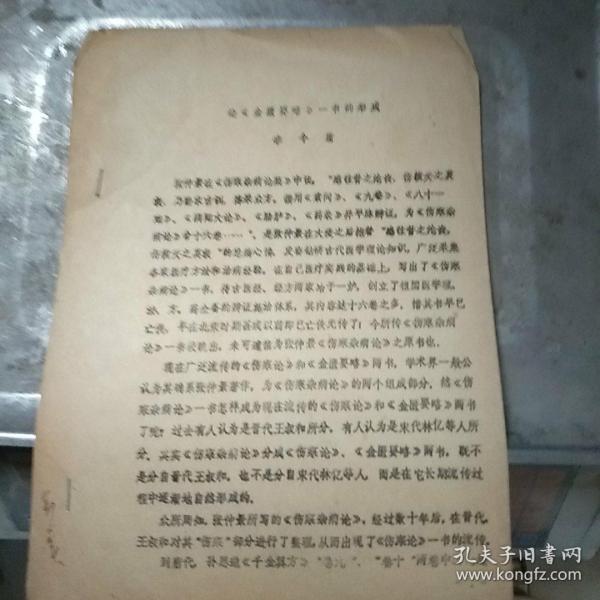 论《金匮要略》一书的形成
李今庸
张仲景在《伤寒杂病论集》中说，“感往昔之沦丧，伤横夭之莫
救，乃勤求古训，博采众方，撰用《素问》、《九卷》、《八十一
难》、《阴阳大论》、《胎胪》、《药录》并平脉辨证，为《伤寒杂
病论》合十六卷……”，是张仲景在大疫之后抱着“感往昔之沦丧，
伤横夭之莫救”的思想心情，发奋钻研古代医学理论知识，广泛采集
各家医疗方法和治病经验，在自己医疗实践的基础上，写出了《伤寒
杂病论》一书，将古医经、经方两家冶于一炉，创立了祖国医学理、
法、方、药全备的辨证施治体系，其内容达十六卷之多，惜其书早已
亡佚，早在北宋时期甚或以前即已亡佚无传了；今所传《伤寒杂病
论》一条较晚出，未可遽信为张仲景《伤寒杂病论》之原书也。
现在广泛流传的《伤寒论》和《金匮要略》两书，学术界一般公
认为其确系张仲景著作，为《伤寒杂病论》的两个组成部分，然《伤
寒杂病论》一书怎样成为现在流传的《伤寒论》和《金匮要略》两书
了呢？过去有人认为是晋代王叔和所分，有人认为是宋代林亿等人所
分，其实《伤寒杂病论》分成《伤寒论》、《金匮要略》两书，既不
是分自晋代王叔和，也不是分自宋代林亿等人，而是在它长期流传过
程中逐渐地自然形成的。
众所周知，张仲景所写的《伤寒杂病论》，经过数十年后，在晋代，
王叔和对其“伤寒”部分进行了整理，从而出现了《伤寒论》一书的流传。
到唐代，孙思邈《千金翼方》“卷九”、“卷十”两卷中
孔夫子旧书网
www.kongfz.com